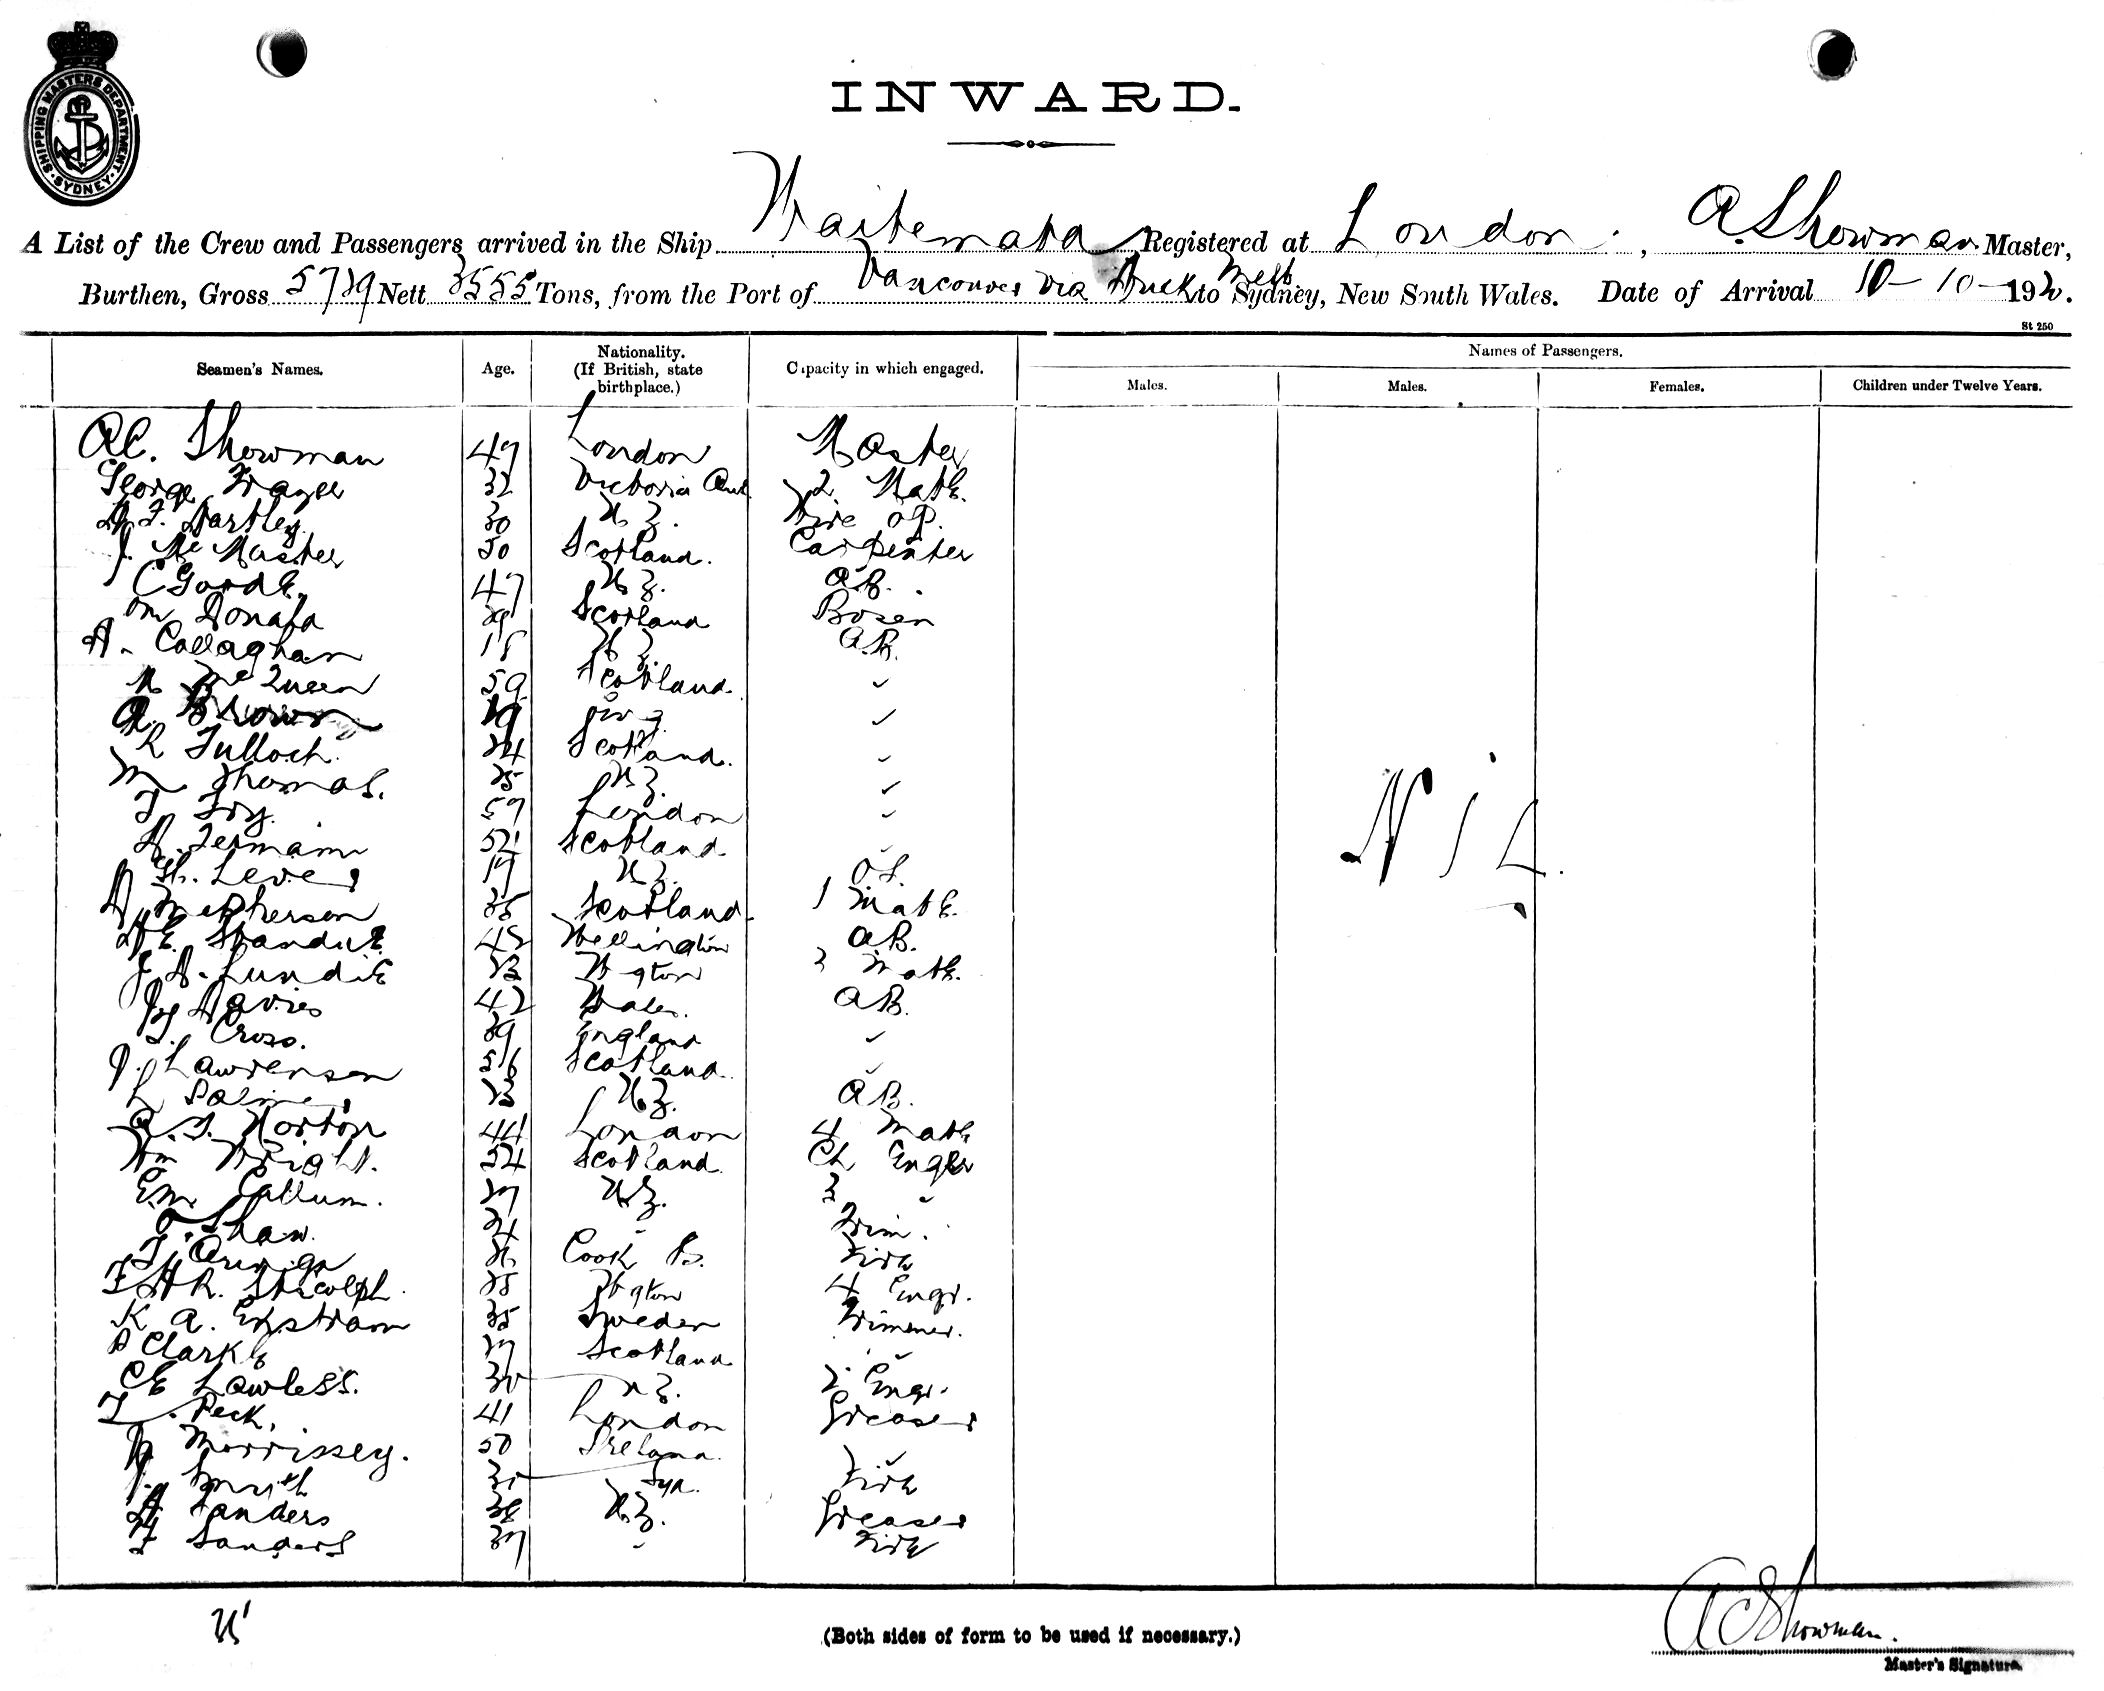 SHIPPING MASTERS DEPARTMENT. SYDNEY.
INWARD.
A List of the Crew and Passengers arrived in the Ship Waitemata Registered at London, A. Showman Master,
Burthen, Gross 5739 Nett 3555 Tons, from the Port of Vancouver via Auck Melb to Sydney, New South Wales. Date of Arrival 10-10-192
St 250
Seamen's Names. Age. Nationality. (If British, state birthplace.) Capacity in which engaged. Names of Passengers.
Males. Males. Females. Children under Twelve Years.
AC. Showman 47 London Master
George 32 Victoria 2 Mate.
Hartley 30 N Z. Wire op.
J. McMaster 50 Scotland. Carpenter
C Goode. 47 N Z. AB.
Scotland Bosen
A. Callaghan 18 N Z. A.B.
McQueen 59 Scotland. "
A. Brown "
R Tulloch. 24 Scotland. "
M Thomas. 25 N Z. "
T Fry. 57 London "
Scotland "
19 N Z. O.S.
McPherson 35 Scotland 1 Mate.
Wellington A.B.
J. A. Lundie 23 W gton 3 Mate.
Davies 42 Wales. AB.
T. Cross. 39 England "
J. Lawrenson 56 Scotland. "
L Palmer 23 N.Z. AB.
A. T. Norton 44 London 4 Mate
Wm Wright. 54 Scotland. Ch Engr
EM Callum. 27 N.Z. 3 "
T. Shaw. 24 " Trim.
Cook Is. Fire
F H R. W gton 4 Engr.
K A. Ekstrom 35 Sweden Trimmer.
Clarke 27 Scotland "
CE Lawless. 30 N Z. 2 Engr.
T. Peck. 41 London Greaser
Morrissey. 50 Ireland. "
J. Smith Syd. Fire
Sanders 38 N.Z. Greaser
F Sanders 37 " Fire
NIL.
(Both sides of form to be used if necessary.)
A C Showman.
Master's Signature.